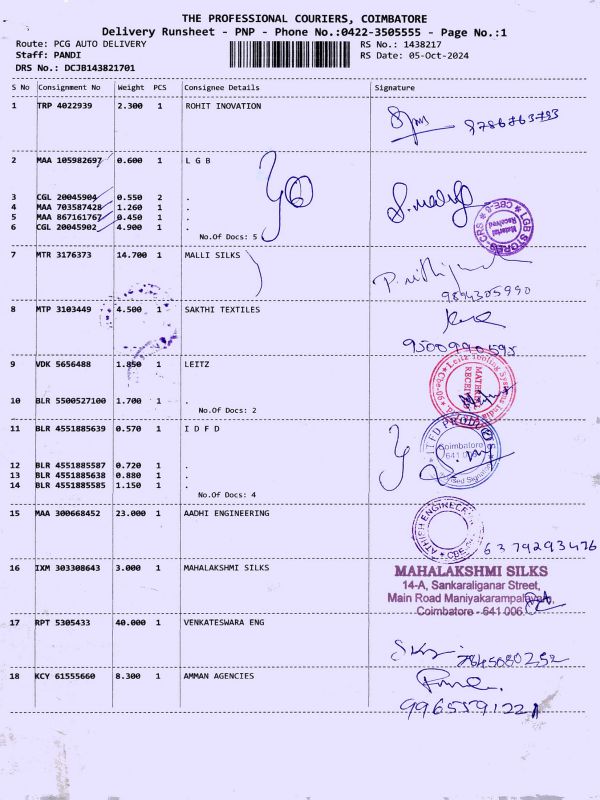 THE PROFESSIONAL COURIERS, COIMBATORE
Delivery Runsheet - PNP - Phone No.:0422-3505555 - Page No.:1
Route: PCG AUTO DELIVERY RS No.: 1438217
Staff: PANDI RS Date: 05-Oct-2024
DRS No.: DCJB143821701
S No Consignment No Weight PCS Consignee Details Signature
1 TRP 4022939 2.300 1 ROHIT INOVATION
8786763783
2 MAA 105982697 0.600 1 L G B
3 CGL 20045904 0.550 2 .
4 MAA 703587428 1.260 1 .
5 MAA 867161767 0.450 1 .
6 CGL 20045902 4.900 1 .
No.Of Docs: 5
LGB STORES-CRS ★ CBE-6 ★
Material
Received
7 MTR 3176373 14.700 1 MALLI SILKS
9894305990
8 MTP 3103449 4.500 1 SAKTHI TEXTILES
9500990595
9 VDK 5656488 1.850 1 LEITZ
Leitz Tooling Systems India
Cbe-06
10 BLR 5500527100 1.700 1 .
No.Of Docs: 2
11 BLR 4551885639 0.570 1 I D F D
Coimbatore
641
12 BLR 4551885587 0.720 1 .
13 BLR 4551885638 0.880 1 .
14 BLR 4551885585 1.150 1 .
No.Of Docs: 4
15 MAA 300668452 23.000 1 AADHI ENGINEERING
6379293476
16 IXM 303308643 3.000 1 MAHALAKSHMI SILKS
MAHALAKSHMI SILKS
14-A, Sankaraliganar Street,
Main Road Maniyakarampalayam,
Coimbatore - 641 006.
17 RPT 5305433 40.000 1 VENKATESWARA ENG
7845680252
18 KCY 61555660 8.300 1 AMMAN AGENCIES
9965591221